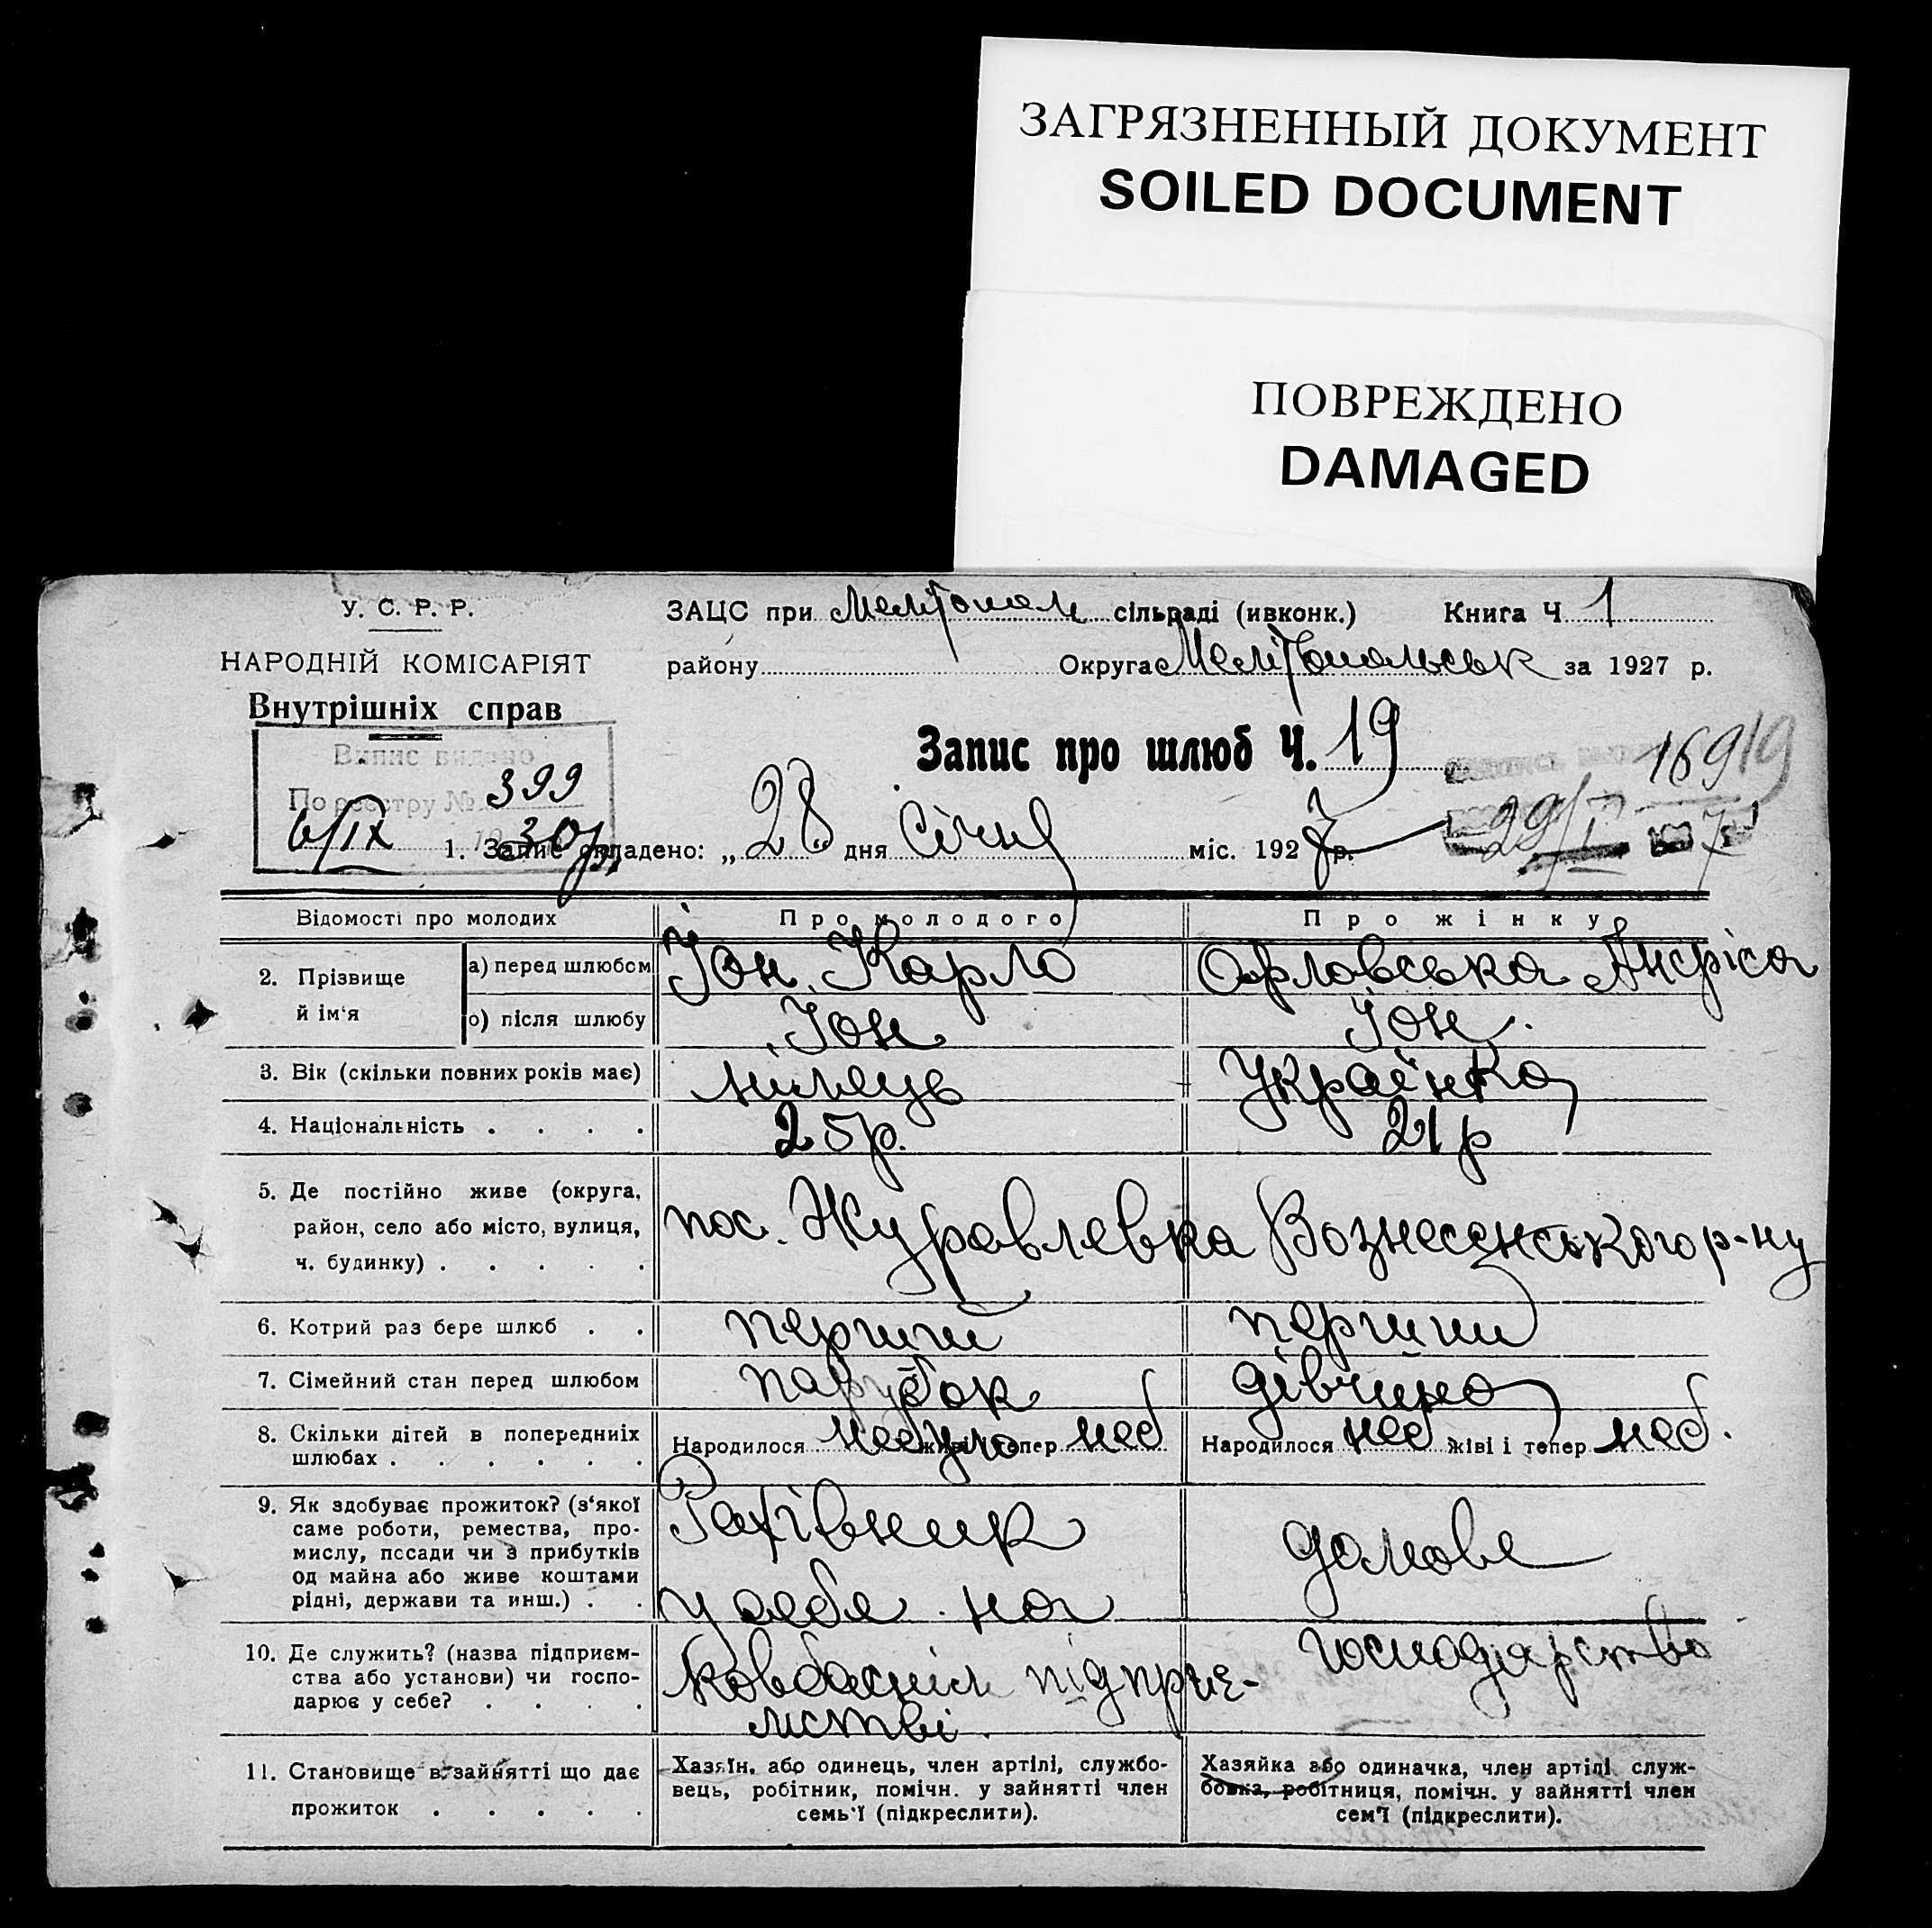 ЗАГРЯЗНЕННЫЙ ДОКУМЕНТ
SOILED DOCUMENT
ПОВРЕЖДЕНО
DAMAGED
У. С. Р. Р.
НАРОДНІЙ КОМІСАРІЯТ
Внутрішніх справ
ЗАЦС при Мелітопол сільраді (ивконк.) Книга Ч 1
району Округа Мелітопольськ за 1927 р.
Випис видано
По реєстру № 399
6/IX 1930р.
Запис про шлюб Ч. 19
16919
29/I 7
1. Запис складено: „28" дня Січня міс. 1927 р.
Відомості про молодих Про молодого Про жінку
2. Прізвище й ім'я
а) перед шлюбом Іон Карло Орловська
о) після шлюбу Іон Іон.
3. Вік (скільки повних років має) німець Українка
4. Національність . . . . 25р. 21р
5. Де постійно живе (округа,
район, село або місто, вулиця,
ч. будинку) . . . . .
пос. Журавлевка Вознесенського р-ну
6. Котрий раз бере шлюб . . перший перший
7. Сімейний стан перед шлюбом парубок дівчина
8. Скільки дітей в попередниіх
шлюбах . . . . . .
Народилося небуло живі і тепер неб Народилося неб жіві і тепер неб.
9. Як здобуває прожиток? (з'якої
саме роботи, ремества, про-
мислу, посади чи з прибутків
од майна або живе коштами
рідні, держави та инш.) . .
Рахівник
у себе на
домове
10. Де служить? (назва підприєм-
ства або установи) чи госпо-
дарює у себе? . . . .
ковбаснім підприє-
мстві.
господарство
11. Становище в зайнятті що дає
прожиток . . . . .
Хазяїн, або одинець, член артілі, службо-
вець, робітник, помічн. у зайнятті член
семь'ї (підкреслити).
Хазяйка або одиначка, член артілі служ-
бовка, робітниця, помічн. у зайнятті член
сем'ї (підкреслити).